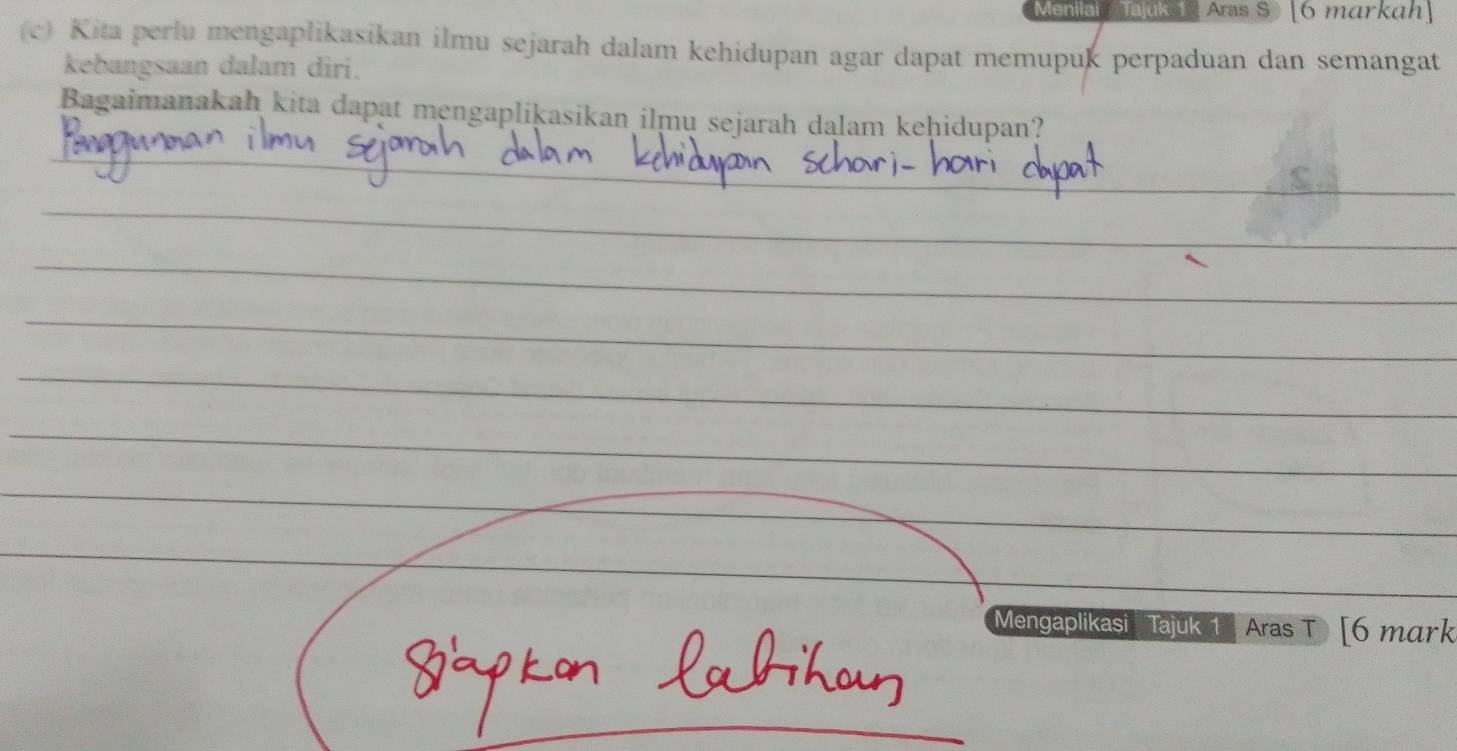 Menilai Tajuk 1 Aras S [6 markah]
(c) Kita perlu mengaplikasikan ilmu sejarah dalam kehidupan agar dapat memupuk perpaduan dan semangat
kebangsaan dalam diri.
Bagaimanakah kita dapat mengaplikasikan ilmu sejarah dalam kehidupan?
Penggunaan ilmu sejarah dalam kehidupan sehari-hari dapat
Mengaplikasi Tajuk 1 Aras T [6 mark
Siapkan latihan